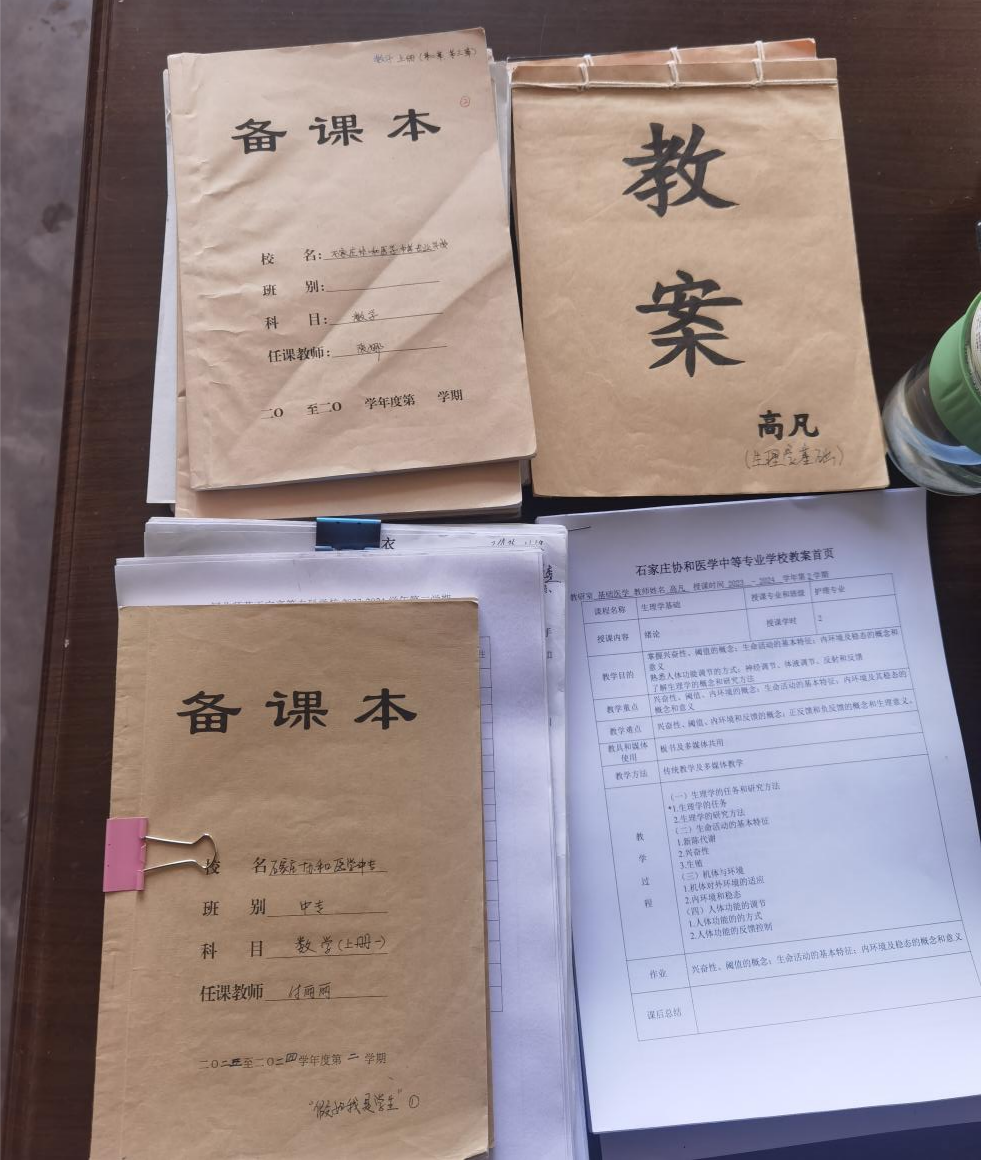 数学 上册(第一章 第二章)
②
备课本
校 名: 石家庄协和医学中等专业学校
班 别:
科 目: 数学
任课教师: 张娜
二〇 至二〇 学年度第 学期
教
案
高凡
(生理学基础)
衣
备课本
校 名 石家庄协和医学中专
班 别 中专
科 目 数学(上册一)
任课教师 付丽丽
二〇二三至二〇二四学年度第二学期
"假如我是学生" ①
石家庄协和医学中等专业学校教案首页
教研室 基础医学 教师姓名 高凡 授课时间 2023 - 2024 学年第2学期
课程名称 生理学基础 授课专业和班级 护理专业
授课内容 绪论 授课学时 2
教学目的 掌握兴奋性、阈值的概念;生命活动的基本特征;内环境及稳态的概念和
意义
熟悉人体功能调节的方式:神经调节、体液调节、反射和反馈
了解生理学的概念和研究方法
教学重点 兴奋性、阈值、内环境的概念;生命活动的基本特征;内环境及其稳态的
概念和意义
教学难点 兴奋性、阈值、内环境和反馈的概念;正反馈和负反馈的概念和生理意义。
教具和媒体
使用 板书及多媒体共用
教学方法 传统教学及多媒体教学
教学过程
(一)生理学的任务和研究方法
*1.生理学的任务
2.生理学的研究方法
(二)生命活动的基本特征
1.新陈代谢
2.兴奋性
3.生殖
(三)机体与环境
1.机体对外环境的适应
2.内环境和稳态
(四)人体功能的调节
1.人体功能的的方式
2.人体功能的反馈控制
作业 兴奋性、阈值的概念;生命活动的基本特征;内环境及稳态的概念和意义
课后总结